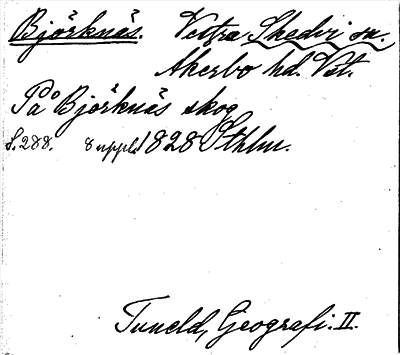 Björknäs. Vestra Skedvi sn.
Åkerbo hd. Vstl.
På Björknäs skog
S. 288. 8 uppl. 1828 Sthlm.
Tuneld, Geografi. II.